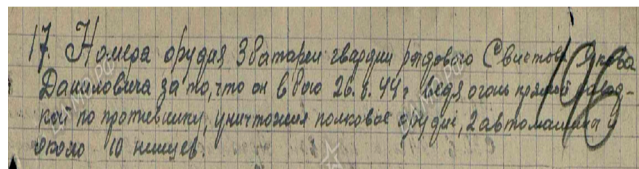 17. Номера орудия 3 батареи гвардии рядового Свистова Якова
Даниловича за то, что он в бою 26.8.44 г. ведя огонь прямой навод-
кой по противнику, уничтожил полковое орудие, 2 автомашины и
около 10 немцев.